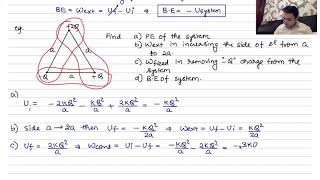 BE = Wext = Uf - Ui ⇒ B.E = - Usystem
eg.
+2Q
a a
-Q a +Q
Find a) PE of the system
b) Wext in increasing the side of Δ from a
to 2a.
c) Wfield in removing "-Q" charge from the
system
d) B.E of system.
a)
Ui = -2KQ²/a - KQ²/a + 2KQ²/a = -KQ²/a
b) Side a→2a then Uf = -KQ²/2a ⇒ Wext = Uf - Ui = KQ²/2a
c) Uf = 2KQ²/a ⇒ Wcons = Ui - Uf = -KQ²/a - 2KQ²/a = -3KQ